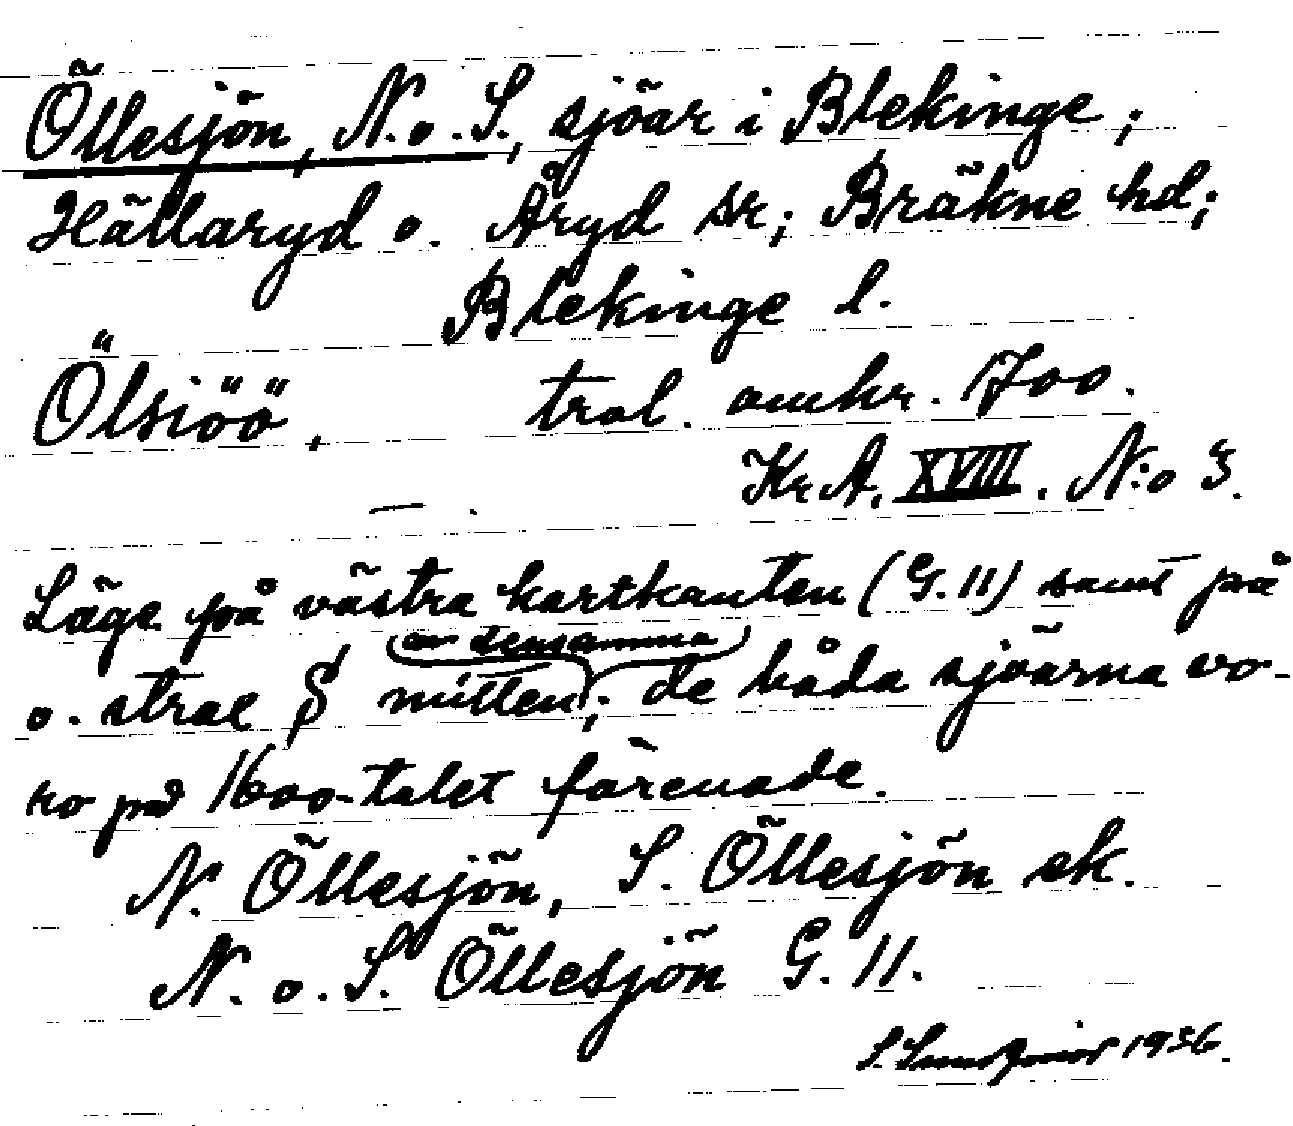 Öllesjön, N. o. S., sjöar i Blekinge;
Hällaryd o. Åryd sr; Bräkne hd;
Blekinge l.
Ölsiöö, trol. omkr. 1700.
Kr. A. XVIII. N:o 3.
Läge på västra kartkanten (G. 11) samt på
av densamma
o. strax S mitten; de båda sjöarna vo-
ro på 1600-talet förenade.
N. Öllesjön, S. Öllesjön ek.
N. o. S. Öllesjön G. 11.
1936.